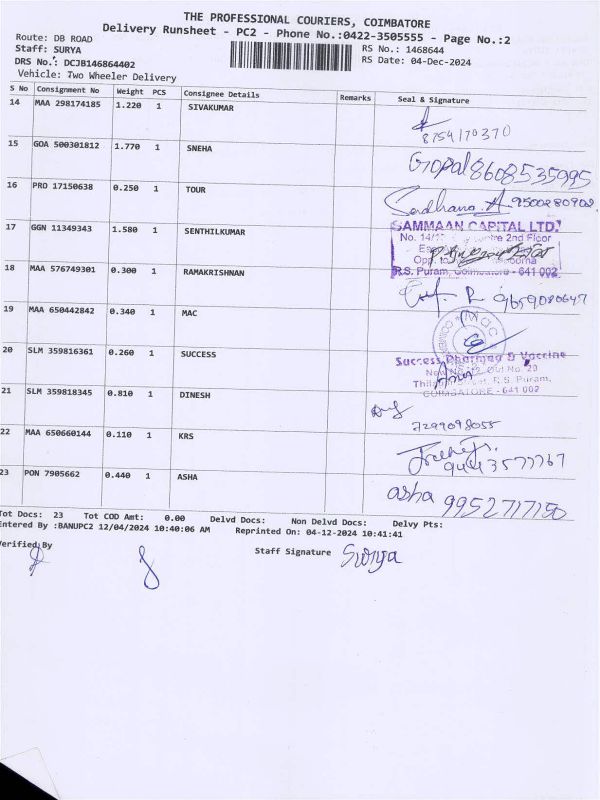 THE PROFESSIONAL COURIERS, COIMBATORE
Delivery Runsheet - PC2 - Phone No.:0422-3505555 - Page No.:2
Route: DB ROAD
Staff: SURYA
RS No.: 1468644
DRS No.: DCJB146864402
RS Date: 04-Dec-2024
Vehicle: Two Wheeler Delivery
S No Consignment No Weight PCS Consignee Details Remarks Seal & Signature
14 MAA 298174185 1.220 1 SIVAKUMAR
8754170370
15 GOA 500301812 1.770 1 SNEHA Gopal 8608535995
16 PRO 17150638 0.250 1 TOUR Sadhana.A. 9500280902
17 GGN 11349343 1.580 1 SENTHILKUMAR
SAMMAAN CAPITAL LTD.
2nd Floor
R.S. Puram, Coimbatore - 641 002
18 MAA 576749301 0.300 1 RAMAKRISHNAN 9659080647
19 MAA 650442842 0.340 1 MAC
MAC
20 SLM 359816361 0.260 1 SUCCESS
Success Pharmay & Vaccine
R.S. Puram,
COIMBATORE - 641 002
21 SLM 359818345 0.810 1 DINESH
7299098055
22 MAA 650660144 0.110 1 KRS
9443577767
23 PON 7905662 0.440 1 ASHA asha 9952717150
Tot Docs: 23 Tot COD Amt: 0.00 Delvd Docs: Non Delvd Docs: Delvy Pts:
Entered By :BANUPC2 12/04/2024 10:40:06 AM Reprinted On: 04-12-2024 10:41:41
Verified By
Staff Signature Surya